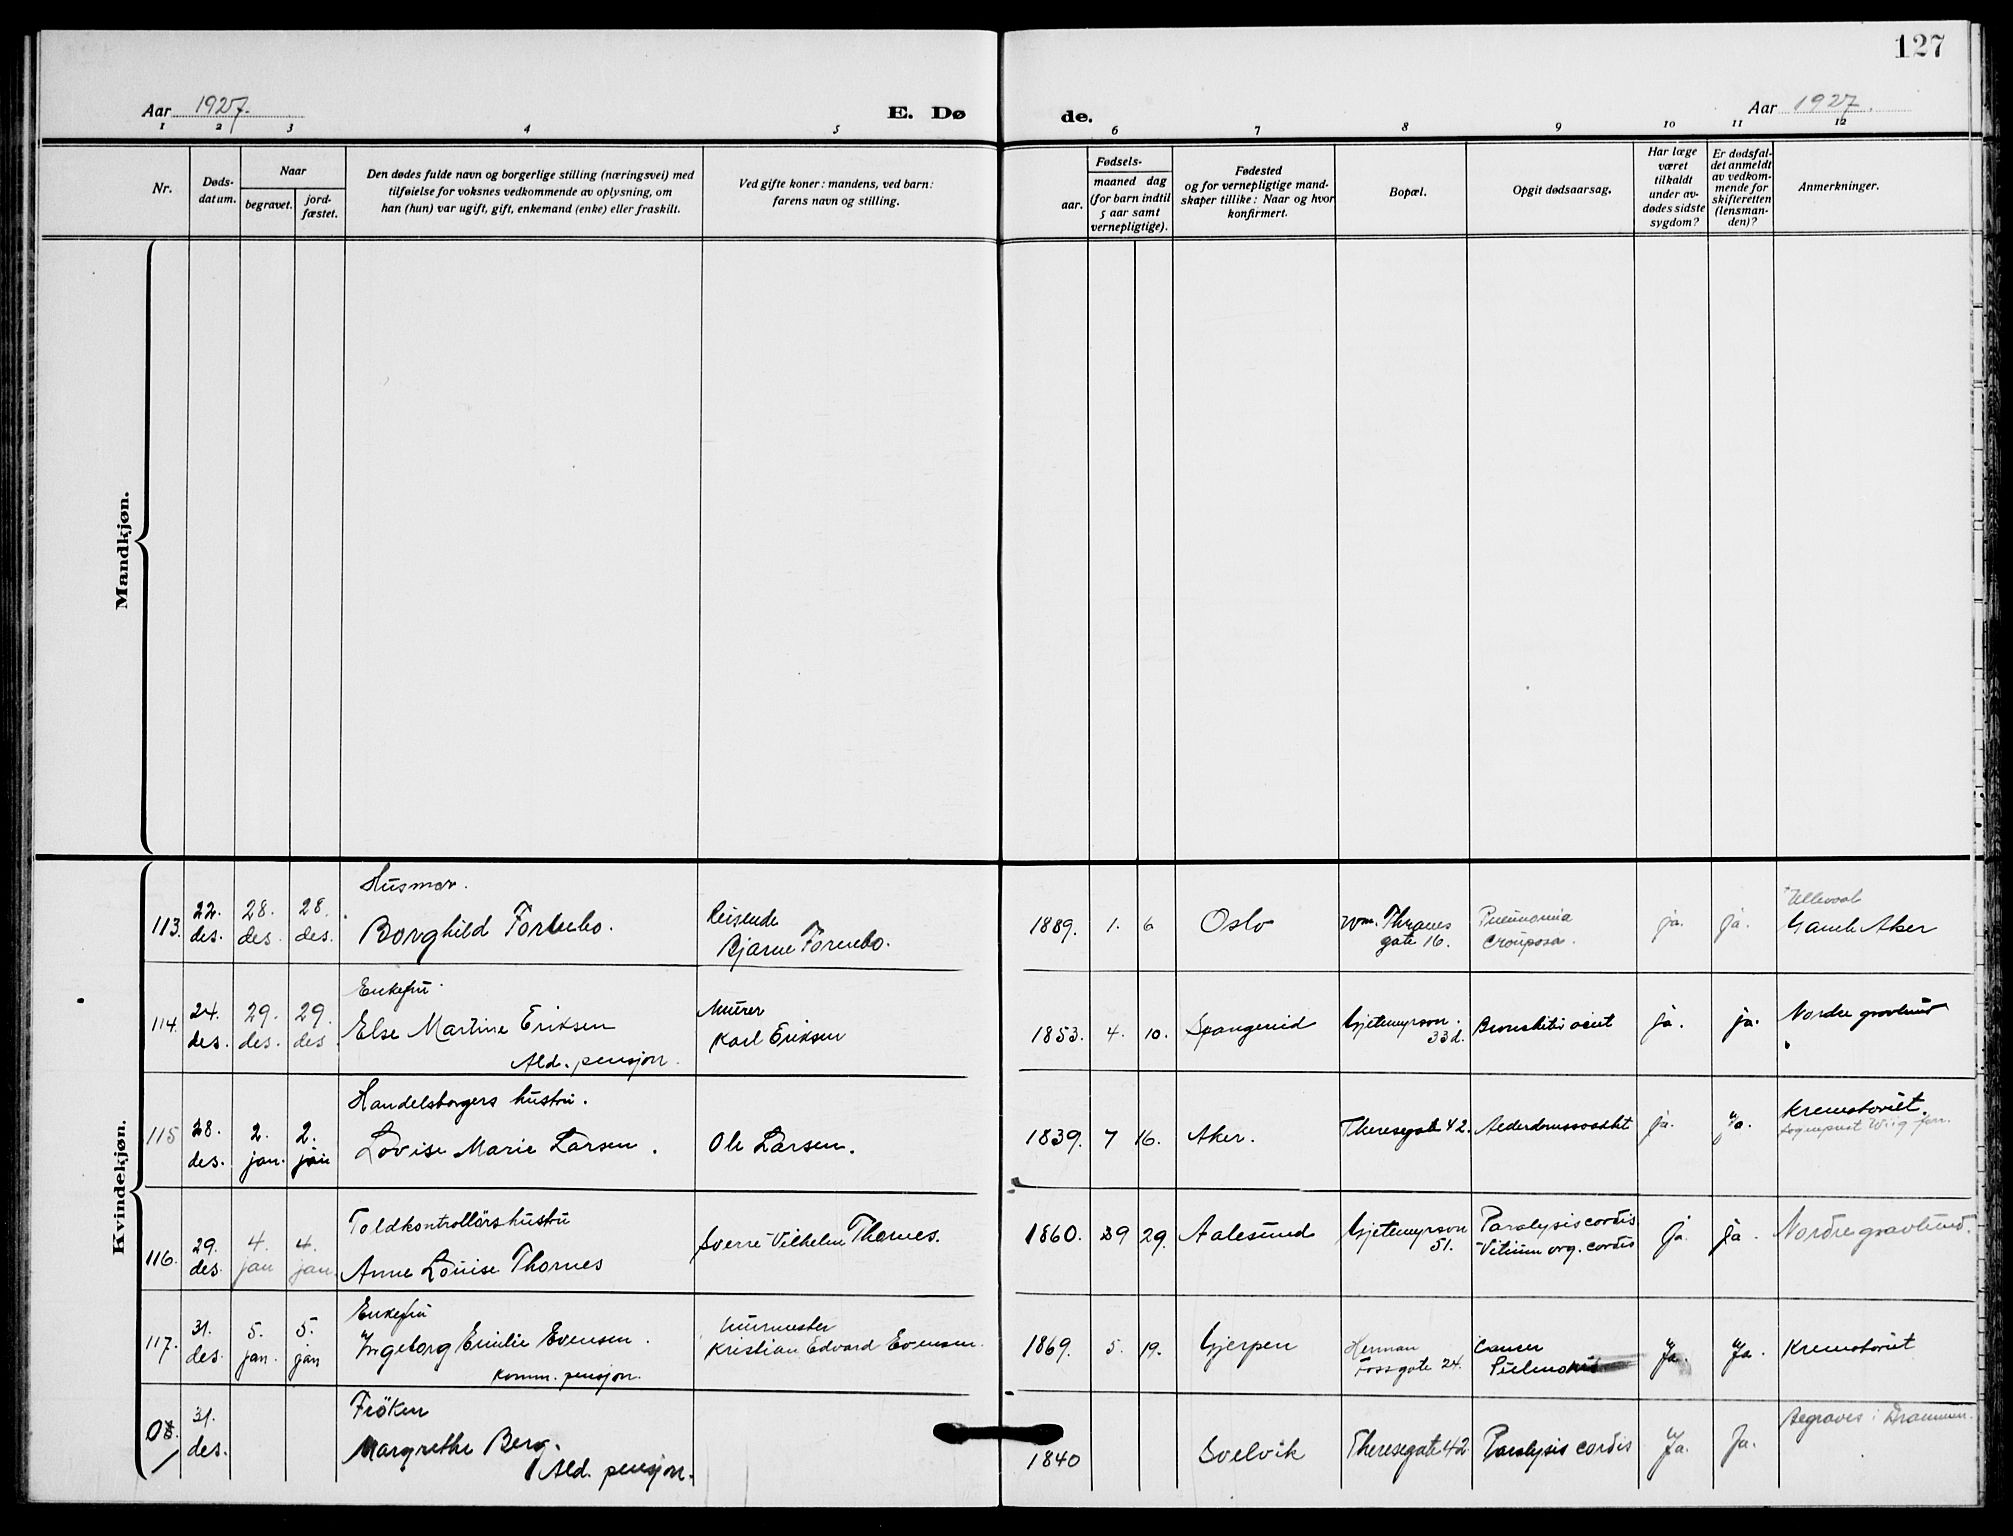 127
Aar 1927.
E. Dø
de.
Aar 1927.
1 2 3 4 5 6 7 8 9 10 11 12
Nr.
Døds-
datum.
Naar
begravet.
jord-
fæstet.
Den dødes fulde navn og borgerlige stilling (næringsvei) med
tilføielse for voksnes vedkommende av oplysning, om
han (hun) var ugift, gift, enkemand (enke) eller fraskilt.
Ved gifte koner: mandens, ved barn:
farens navn og stilling.
Fødsels-
aar.
maaned dag
(for barn indtil
5 aar samt
vernepligtige).
Fødested
og for vernepligtige mand-
skaper tillike: Naar og hvor
konfirmert.
Bopæl.
Opgit dødsaarsag.
Har læge
været
tilkaldt
under av-
dødes sidste
sygdom?
Er dødsfal-
det anmeldt
av vedkom-
mende for
skifteretten
(lensman-
den)?
Anmerkninger.
Mandkjøn.
Kvindekjøn.
113.
22.
des.
28.
des.
28.
des.
Husmor.
Borghild Fornebo.
Reisende
Bjarne Fornebo.
1889. 1. 6
Oslo
Wm. Thranes
gate 16.
Pneumonia
crouposa.
ja.
ja.
Ullevaal
Gamle Aker
114.
24.
des.
29.
des.
29.
des
Enkefru
Else Martine Eriksen
Ald. pensjon.
Murer
Karl Eriksen
1853. 4. 10.
Spangereid
Gjetemyrsvn.
33d.
ja.
ja.
Nordre gravlund
115
28.
des.
2.
jan.
2.
jan
Handelsborgers hustru.
Lovise Marie Larsen.
Ole Larsen.
1839. 7 16.
Aker.
Theresegate 42.
ja.
Ja.
Krematoriet.
Sogneprest Wiig forr.
116.
29.
des.
4.
jan
4.
jan.
Toldkontrollørs hustru
Anne Louise Thornes
Sverre Vilhelm Thornes.
1860. 9 29.
Aalesund
Gjetemyrsvn
51.
Paralysis cordis
Vitium org. cordis
ja
ja.
Nordre gravlund.
117.
31.
des.
5.
jan.
5.
jan
Enkefru
Ingeborg Emilie Evensen.
Komm. pensjon.
Murmester
Kristian Edvard Evensen.
1869. 5. 19.
Gjerpen
Herman
Fossgate 24.
Cancer
Ja.
Ja.
Krematoriet
31.
des.
Frøken
Margrethe Berg.
Ald. pensjon.
1840
Svelvik
Theresegate 42
Paralysis cordis
Ja.
Ja.
Begraves i Drammen.